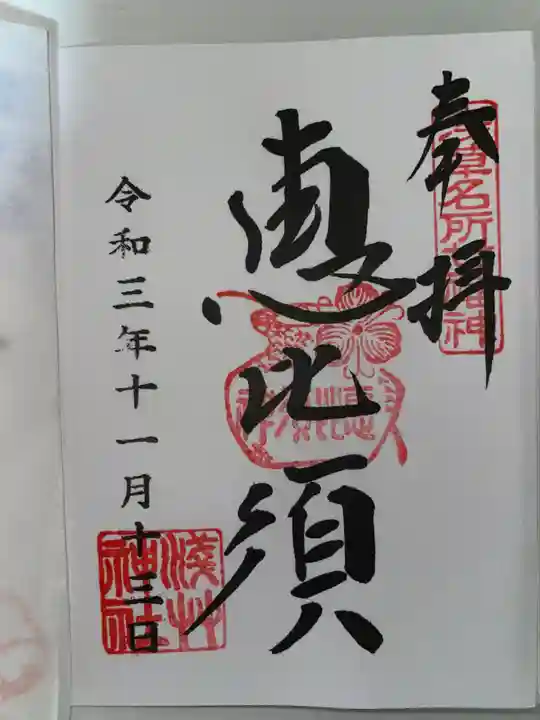 奉拝
浅草名所七福神
惠比須
令和三年十一月十三日
浅草神社